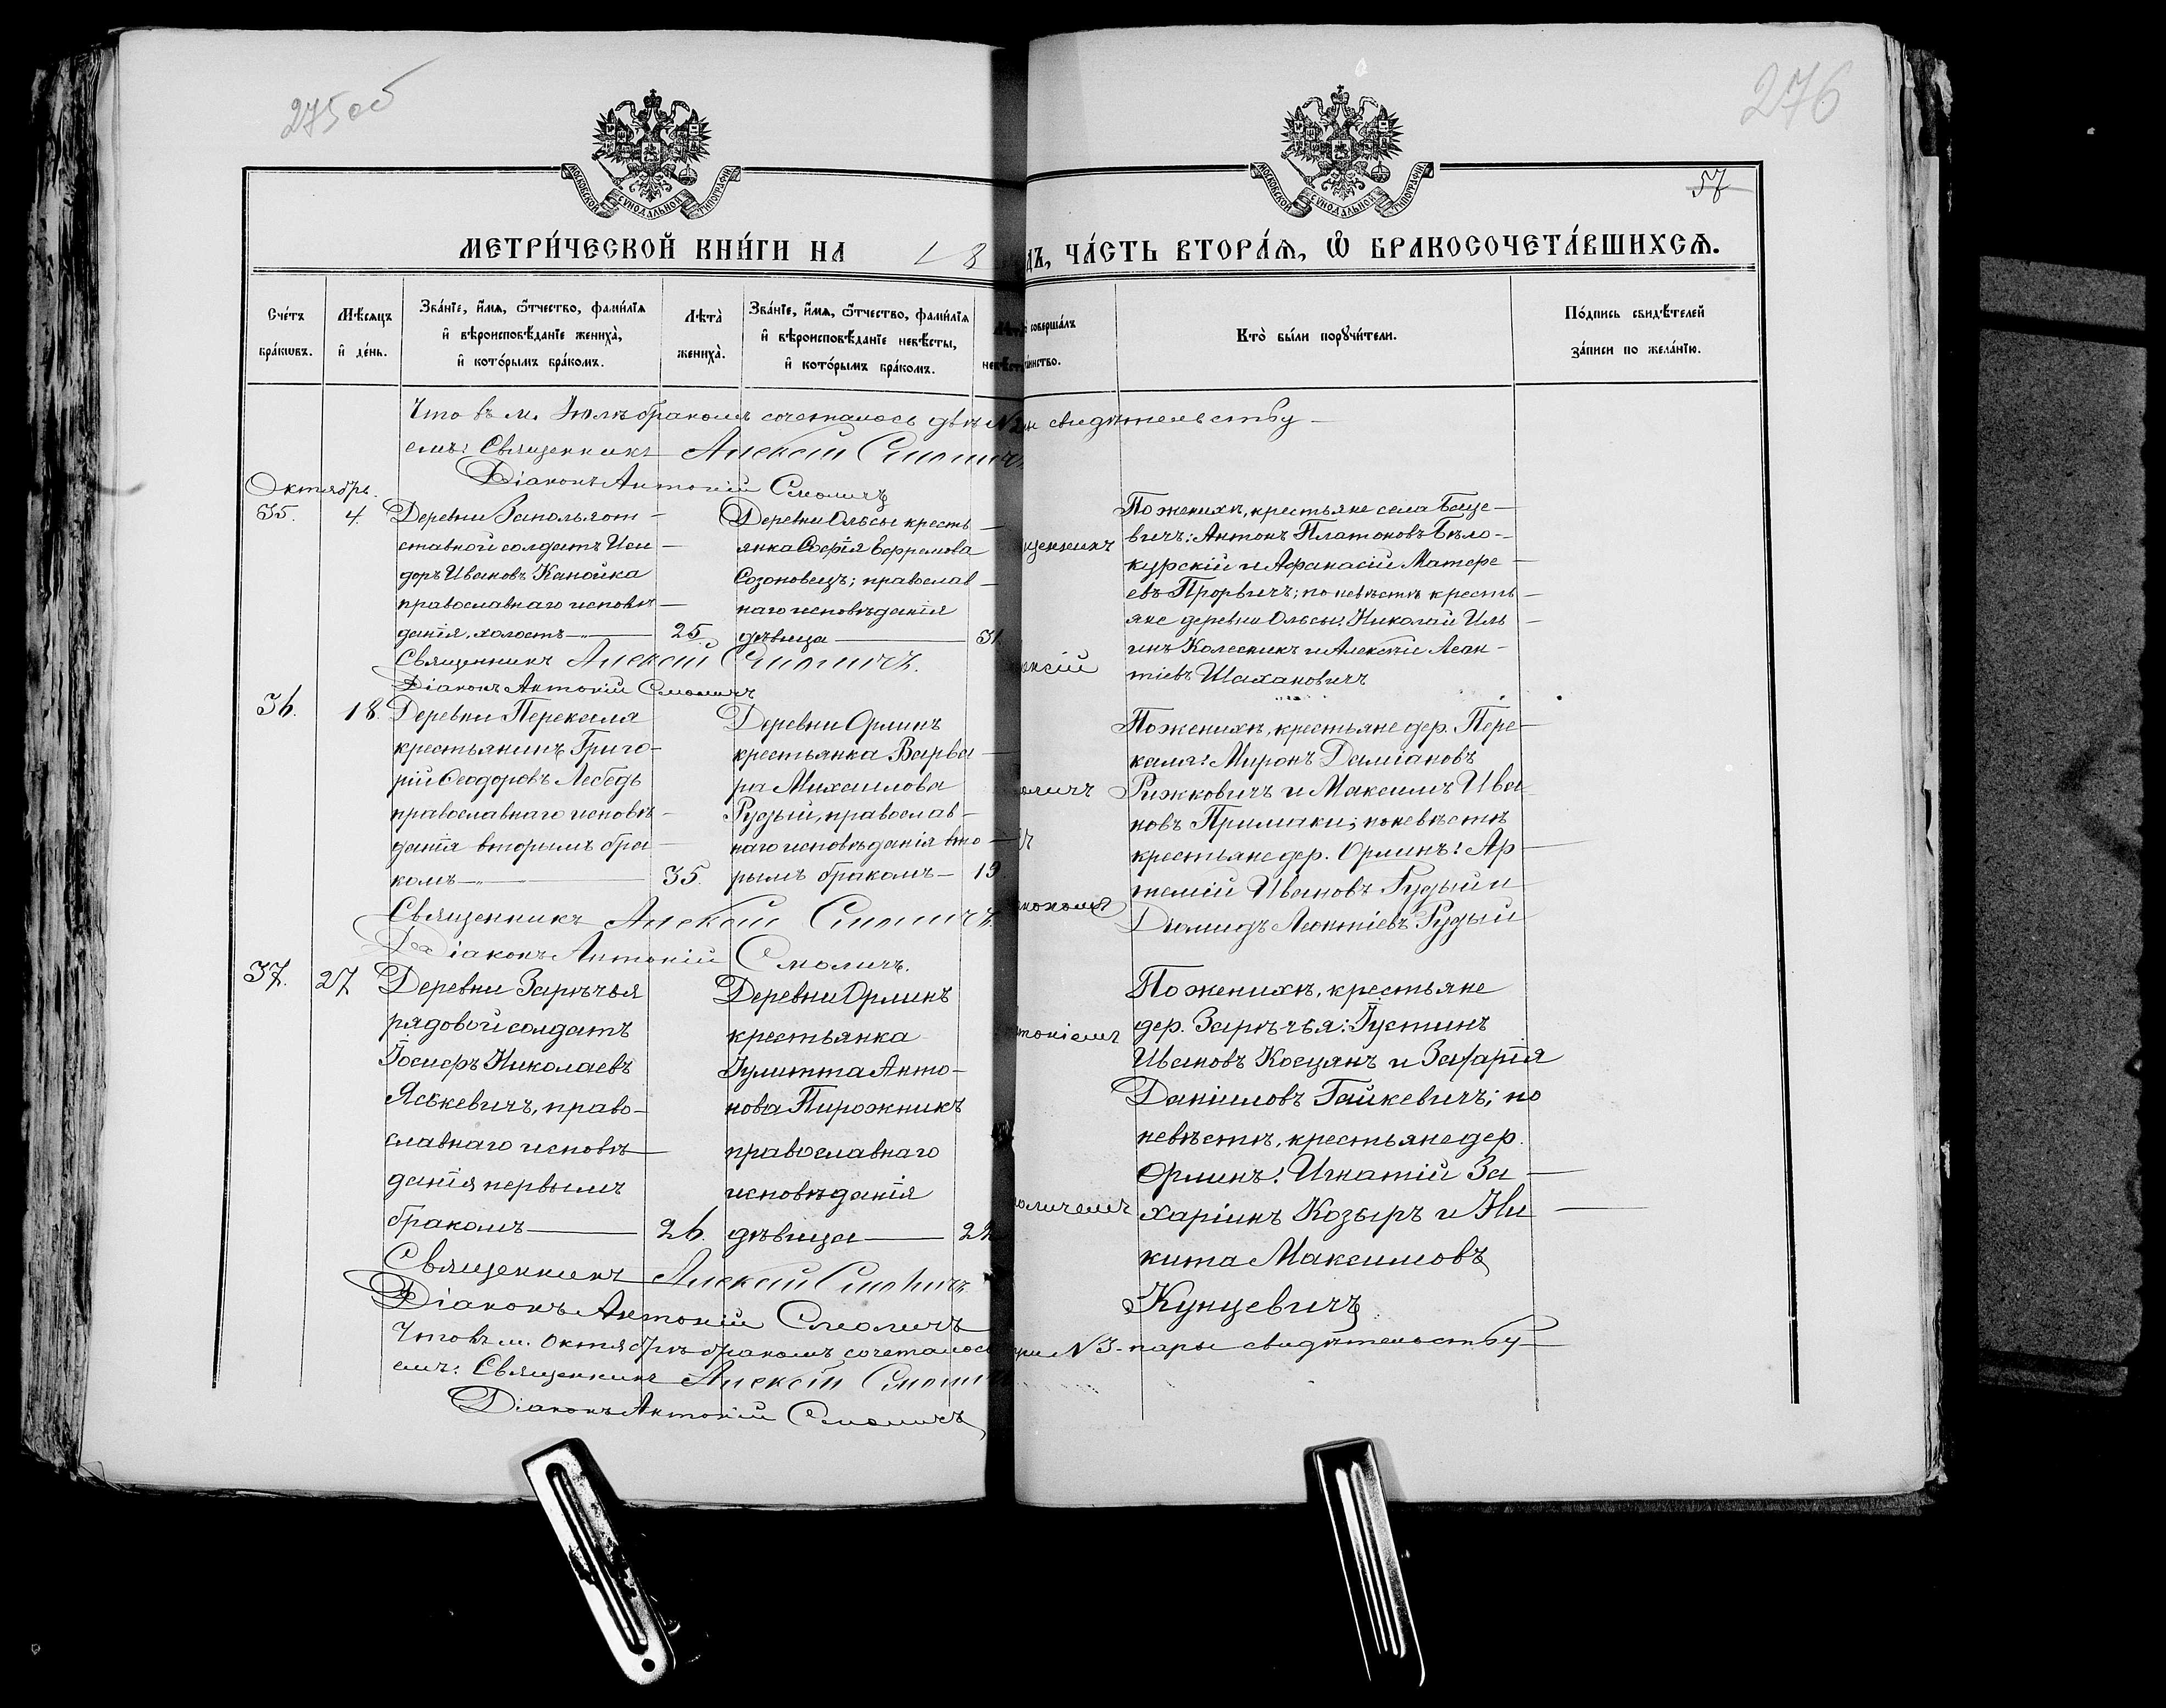 275 об
276
57
МОСКОВСКОЙ СУНОДАЛЬНОЙ ТИПОГРАФІИ
МОСКОВСКОЙ СУНОДАЛЬНОЙ ТИПОГРАФІИ
МЕТРИ́ЧЕСКОЙ КНИ́ГИ НА 18
ДЪ, ЧА́СТЬ ВТОРА́Я, Ѡ БРАКОСОЧЕТА́ВШИХСЯ.
Сче́тъ бра́кѡвъ.
Мѣ́сяцъ и҆ де́нь.
Зва́нїе, и҆́мя, ѻ҆́тчество, фами́лїя
и҆ вѣроисповѣ́данїе жениха̀,
и҆ кото́рымъ бра́комъ.
Лѣта̀ жениха̀.
Зва́нїе, и҆́мя, ѻ҆́тчество, фами́лїя
и҆ вѣроисповѣ́данїе невѣ́сты,
и҆ кото́рымъ бра́комъ.
Лѣта̀ невѣст
соверша́лъ
таинство.
Кто̀ бы́ли порꙋчи́тели.
По́дпись свидѣ́телей
за́писи по жела́нїю.
Что въ м. Іюлѣ бракомъ сочеталось двѣ №2 свидѣтельству-
емъ: Священникъ Алексій Смоличъ
Діаконъ Антоній Смоличъ
Октябрь.
35.
4.
Деревни Заполья от-
ставной солдатъ Иси-
доръ Ивановъ Канойка
православнаго исповѣ-
данія, холостъ
25.
Деревни Ольсы кресть-
янка Софія Ефремова
Созоновецъ; православ-
наго исповѣданія
дѣвица
31.
щенникъ
ексій
По женихѣ, крестьяне села Баце-
вичъ: Антонъ Платоновъ Бѣло-
курскій и Афанасій Матфе-
евъ Прорвичъ; по невѣстѣ кресть-
яне деревни Ольсы: Николай Иль-
инъ Колесникъ и Алексѣй Леон-
тіевъ Шахановичъ
Священникъ Алексій Смоличъ.
Діаконъ Антоній Смоличъ
36.
18.
Деревни Перекаля
крестьянинъ Григо-
рій Ѳеодоровъ Лебедь
православнаго исповѣ-
данія вторымъ бра-
комъ
35.
Деревни Орлинъ
крестьянка Варва-
ра Михаилова
Рудый, православ-
наго исповѣданія вто-
рымъ бракомъ
19.
оличъ
ъ
акономъ
По женихѣ, крестьяне дер. Пере-
каля: Миронъ Даміановъ
Рижковичъ и Максимъ Ива-
новъ Примаки; по невѣстѣ
крестьяне дер. Орлинъ: Ар-
темій Ивановъ Гудый и
Діомидъ Леонтіевъ Рудый
Священникъ Алексій Смоличъ.
Діаконъ Антоній Смоличъ.
37.
27
Деревни Зарѣчья
рядовой солдатъ
Іосифъ Николаевъ
Яськевичъ, право-
славнаго исповѣ-
данія первымъ
бракомъ
26.
Деревни Орлинъ
крестьянка
Іулитта Анто-
нова Пирожникъ
православнаго
исповѣданія
дѣвица
22
тоніемъ
оличемъ
По женихѣ, крестьяне
дер. Зарѣчья: Іустинъ
Ивановъ Косцянъ и Захарія
Даніиловъ Гайкевичъ; по
невѣстѣ, крестьяне дер.
Орлинъ: Игнатій За-
харіинъ Козыръ и Ни-
кита Максимовъ
Кунцевичъ.
Священникъ Алексій Смоличъ
Діаконъ Антоній Смоличъ
Что въ м. Октябрѣ бракомъ сочеталось три №3-пары свидѣтельству-
емъ: Священникъ Алексій Смолич
Діаконъ Антоній Смоличъ